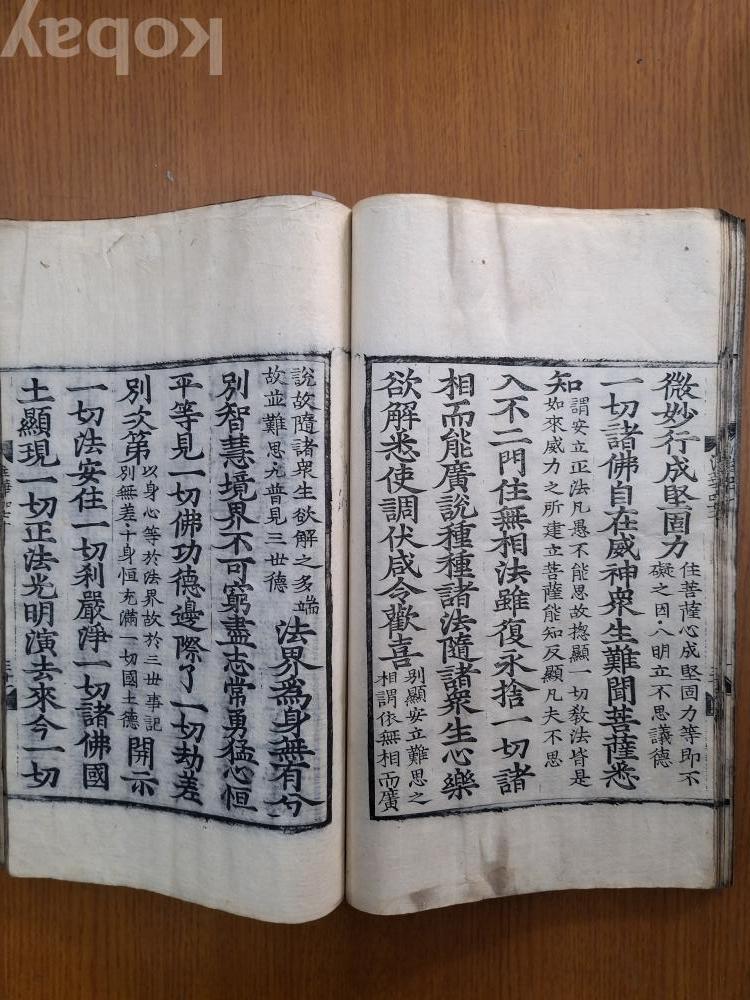 kobay
微妙行成堅固力住菩薩心成堅固力等即不
礙之因八明立不思議德
一切諸佛自在威神衆生難聞菩薩悉
知謂安立正法凡愚不能思故揔顯一切教法皆是
如來威力之所建立菩薩能知反顯凡夫不思
入不二門住無相法雖復永捨一切諸
相而能廣說種種諸法隨諸衆生心樂
欲解悉使調伏咸令歡喜別顯安立難思之
相謂依無相而廣
說故隨諸衆生欲解之多端
故並難思九普見三世德
法界爲身無有分
別智慧境界不可窮盡志常勇猛心恒
平等見一切佛功德邊際了一切劫差
別次第以身心等於法界故於三世事記
別無差十身恒充滿一切國土德
開示
一切法安住一切刹嚴淨一切諸佛國
土顯現一切正法光明演去來今一切